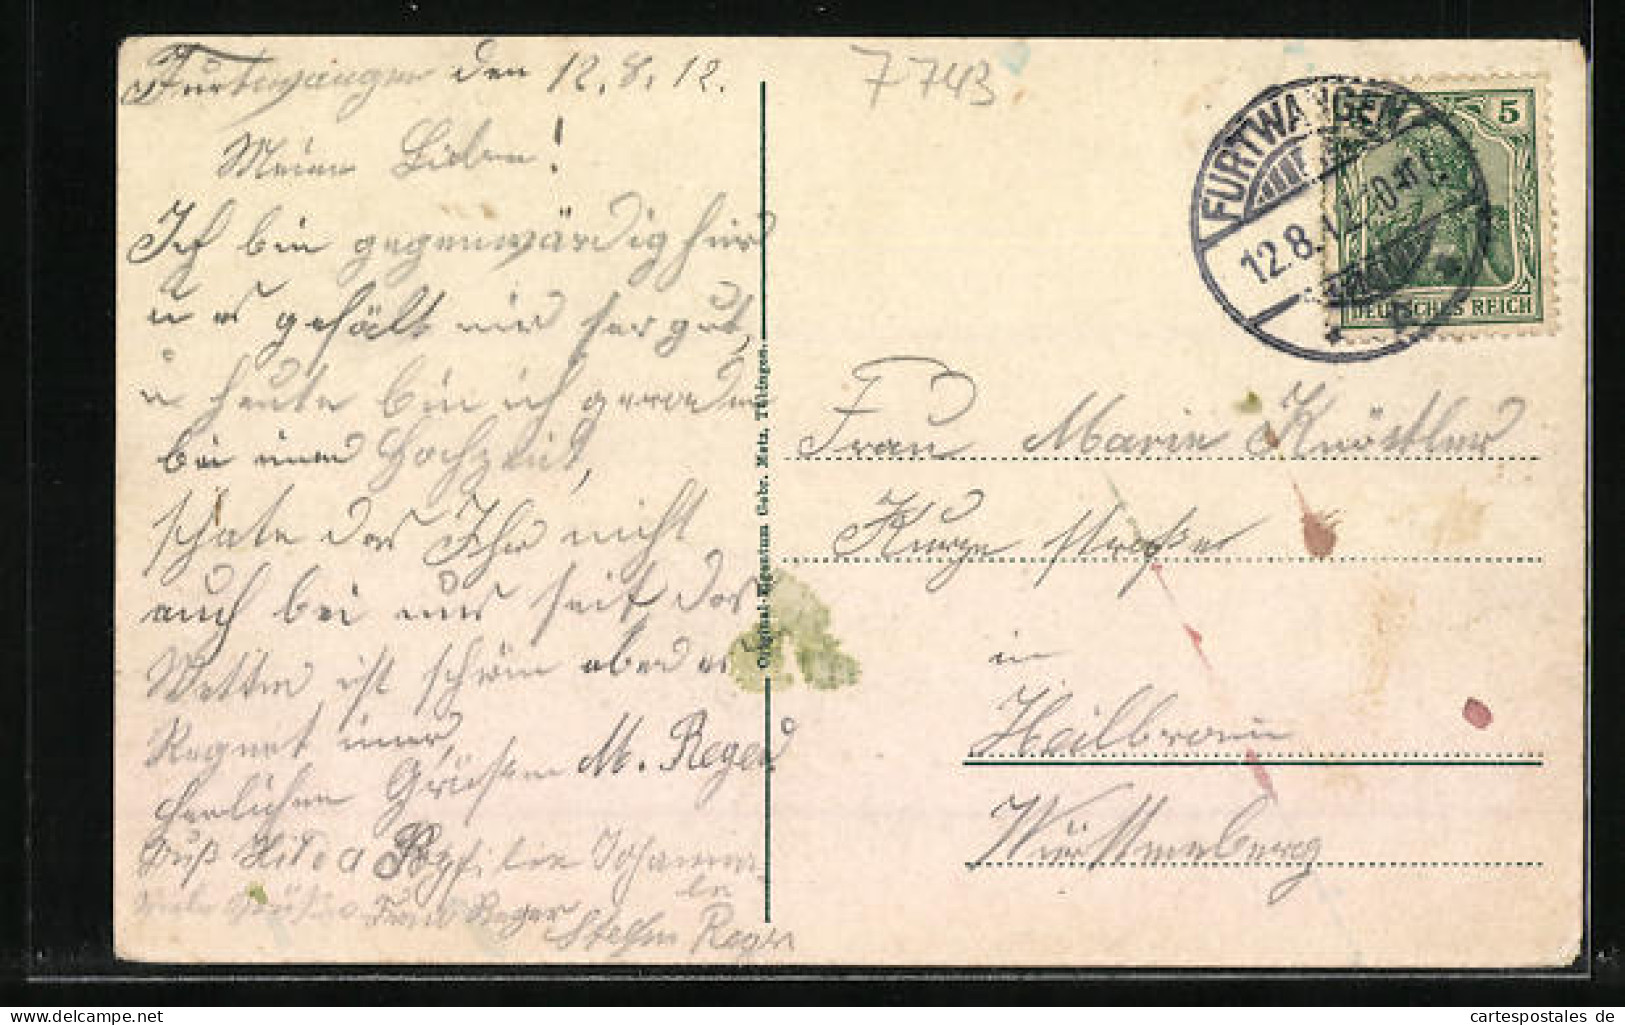 Furtwangen den 12.8.12.
Meine Lieben!
Ich bin gegenwärdig hier
u es gefält mir ser gut,
u heute bin ich gerade
bei einer Hochzeit,
schate das Ihr nicht
auch bei uns seit, das
Wetter ist schön aber es
Regnet imer,
herlichen Grüßen M. Reger
Gruß Johann
viele Grüße Reger
Stefan Reger
7743
FURTWANGEN
12.8.12
5
DEUTSCHES REICH
Frau Marie Knöstler
Kurze straße
in
Heilbronn
Württemberg
Original-Eigentum Gebr. Metz, Tübingen.
akpool.de
cartespostales de